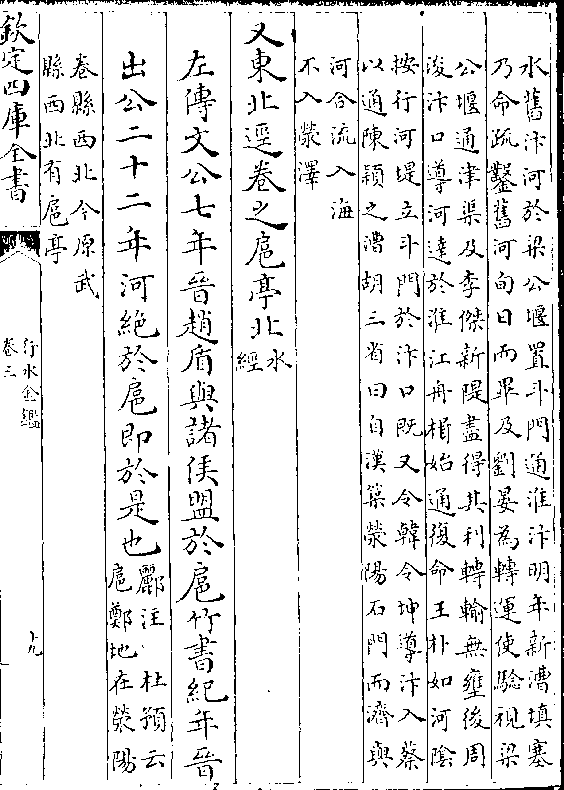 水舊汴河於梁公堰置斗門通淮汴明年新漕填塞
乃命疏鑿舊河旬日而畢及劉晏為轉運使驗視梁
公堰通津渠及李傑新隄盡得其利轉輸無壅後周
浚汴口導河達於淮江舟楫始通復命王朴如河陰
按行河堤立斗門於汴口既又令韓令坤導汴入蔡
以通陳潁之漕胡三省曰自漢築滎陽石門而濟與
河合流入海
不入滎澤
又東北逕卷之扈亭北
水
經
左傳文公七年晉趙盾與諸侯盟於扈竹書紀年晉
出公二十二年河絕於扈即於是也
酈注 杜預云
扈鄭地在滎陽
卷縣西北今原武
縣西北有扈亭
欽定四庫全書
行水金鑑
卷三
十九